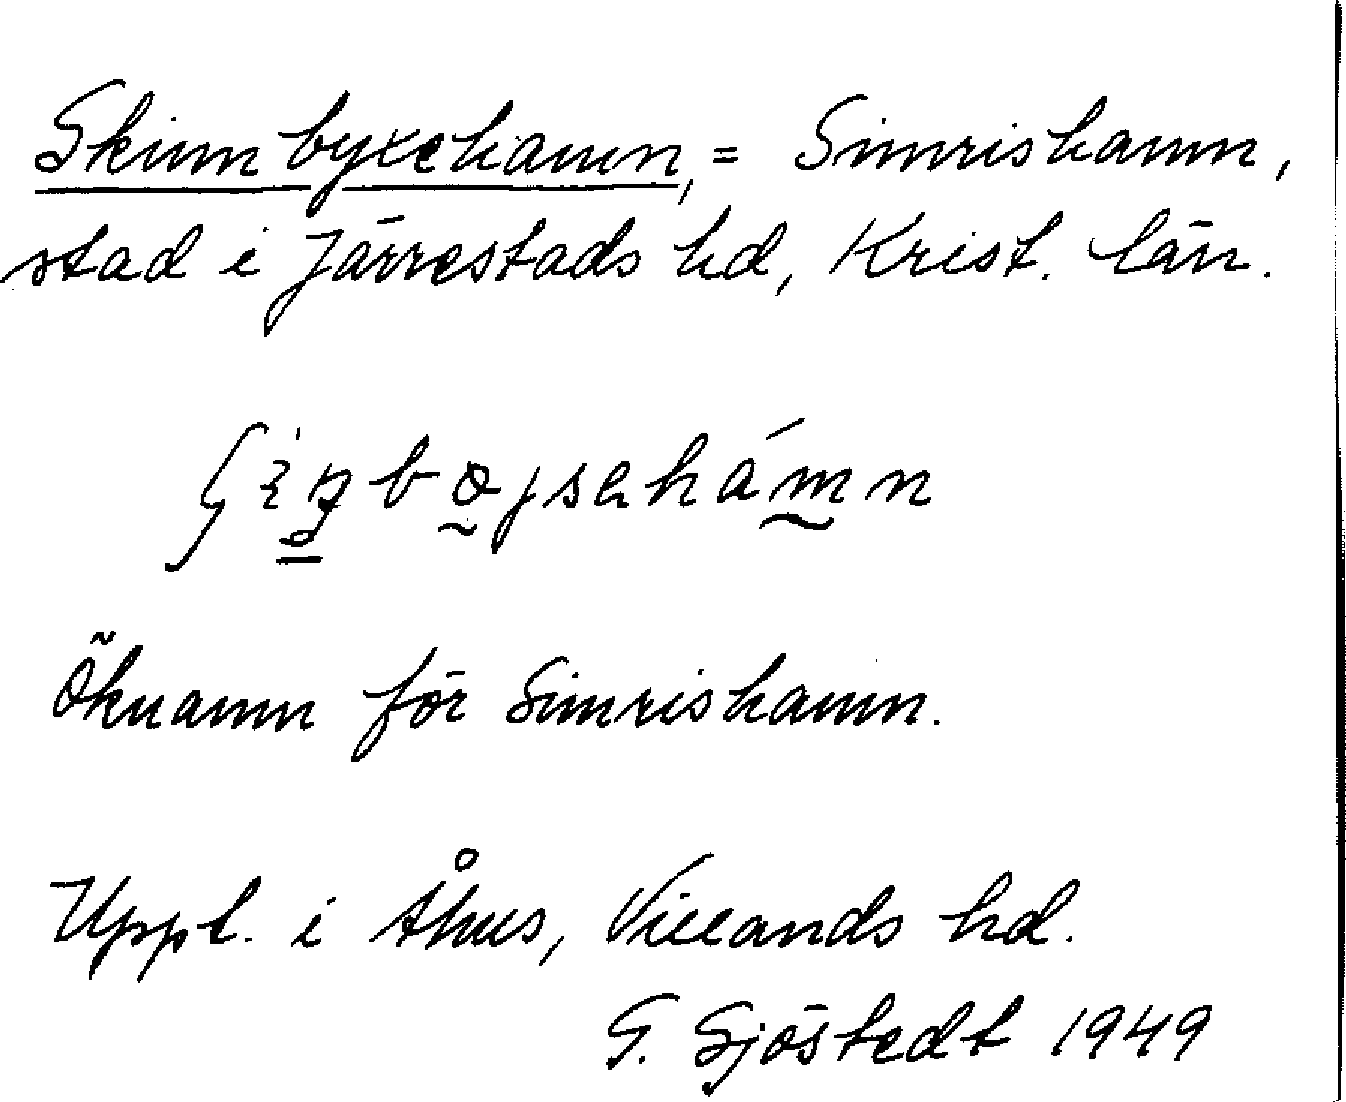 Skinnbyxehamn, = Simrishamn,
stad i Järrestads hd, Krist. län.
Öknamn för Simrishamn.
Uppt. i Åhus, Villands hd.
G. Sjöstedt 1949